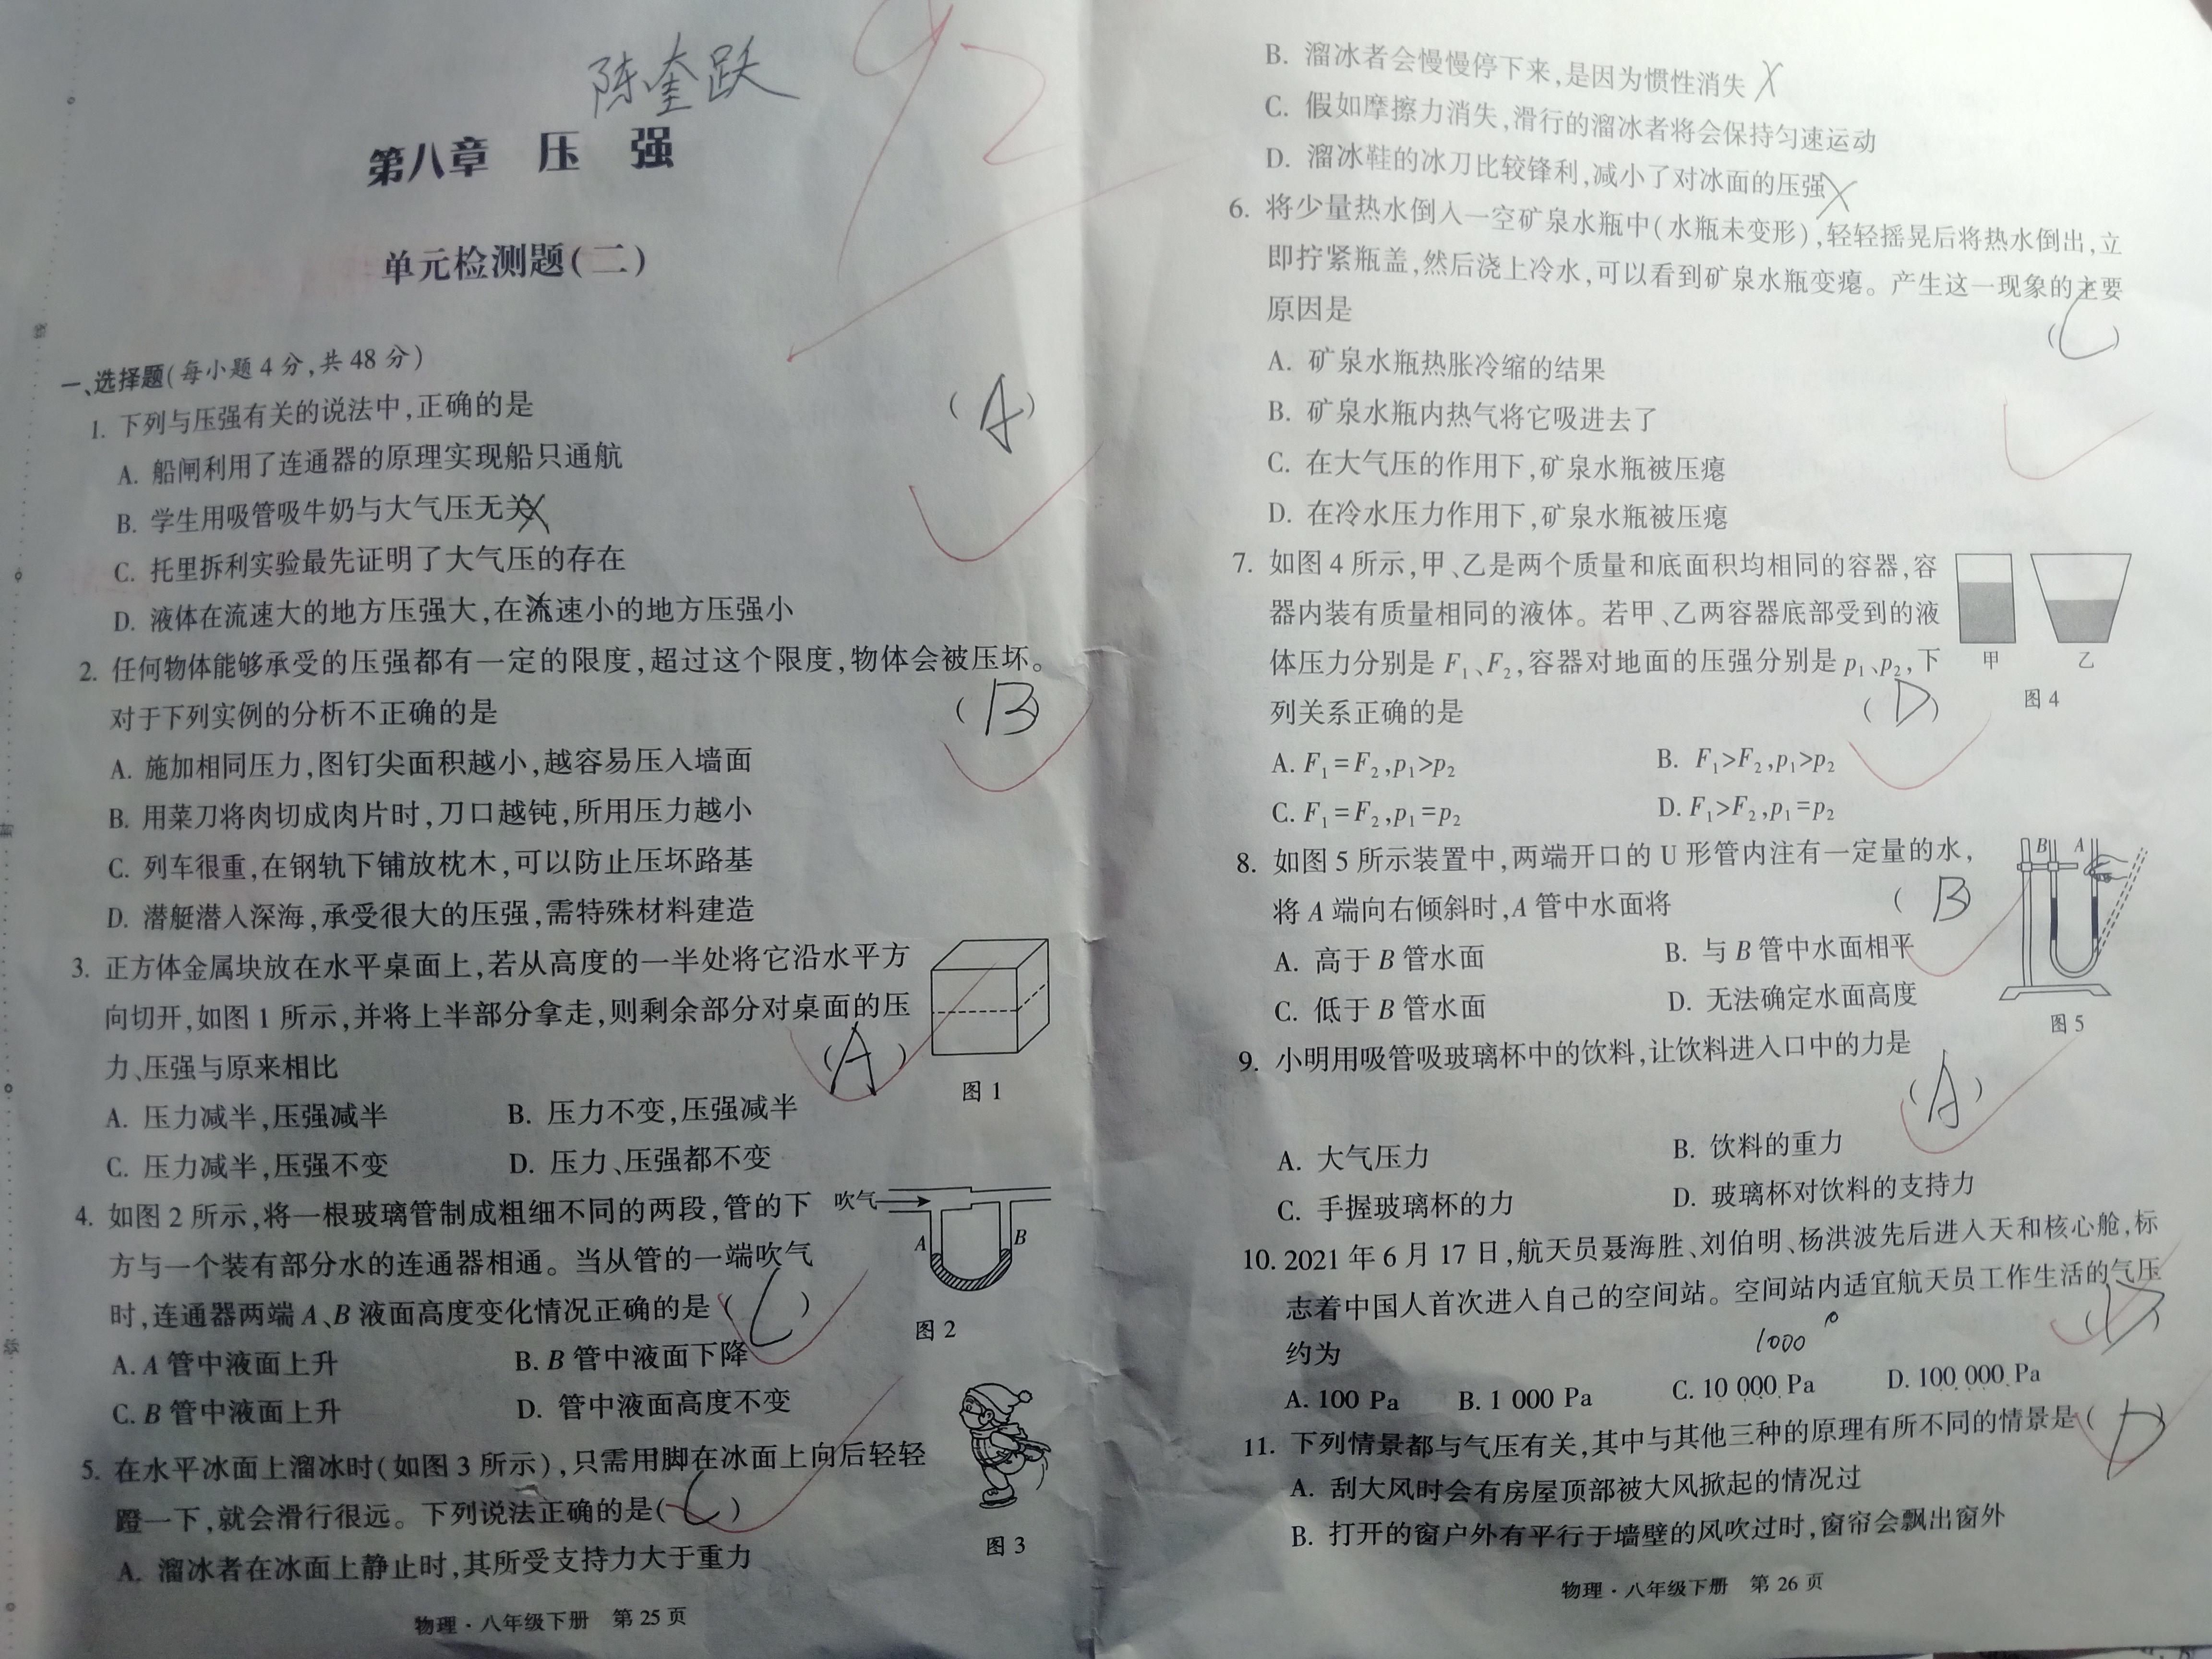 陈奎跃
92
第八章 压 强
单元检测题(二)
一、选择题(每小题4分,共48分)
1. 下列与压强有关的说法中,正确的是 (A)
A. 船闸利用了连通器的原理实现船只通航
B. 学生用吸管吸牛奶与大气压无关
C. 托里拆利实验最先证明了大气压的存在
D. 液体在流速大的地方压强大,在流速小的地方压强小
2. 任何物体能够承受的压强都有一定的限度,超过这个限度,物体会被压坏。
对于下列实例的分析不正确的是 (B)
A. 施加相同压力,图钉尖面积越小,越容易压入墙面
B. 用菜刀将肉切成肉片时,刀口越钝,所用压力越小
C. 列车很重,在钢轨下铺放枕木,可以防止压坏路基
D. 潜艇潜入深海,承受很大的压强,需特殊材料建造
3. 正方体金属块放在水平桌面上,若从高度的一半处将它沿水平方
向切开,如图1所示,并将上半部分拿走,则剩余部分对桌面的压
力、压强与原来相比 (A)
图1
A. 压力减半,压强减半 B. 压力不变,压强减半
C. 压力减半,压强不变 D. 压力、压强都不变
4. 如图2所示,将一根玻璃管制成粗细不同的两段,管的下
方与一个装有部分水的连通器相通。当从管的一端吹气
时,连通器两端A、B液面高度变化情况正确的是 (C)
吹气
A B
图2
A. A管中液面上升 B. B管中液面下降
C. B管中液面上升 D. 管中液面高度不变
5. 在水平冰面上溜冰时(如图3所示),只需用脚在冰面上向后轻轻
蹬一下,就会滑行很远。下列说法正确的是(C)
图3
A. 溜冰者在冰面上静止时,其所受支持力大于重力
物理·八年级下册 第25页
B. 溜冰者会慢慢停下来,是因为惯性消失
C. 假如摩擦力消失,滑行的溜冰者将会保持匀速运动
D. 溜冰鞋的冰刀比较锋利,减小了对冰面的压强
6. 将少量热水倒入一空矿泉水瓶中(水瓶未变形),轻轻摇晃后将热水倒出,立
即拧紧瓶盖,然后浇上冷水,可以看到矿泉水瓶变瘪。产生这一现象的主要
原因是 (C)
A. 矿泉水瓶热胀冷缩的结果
B. 矿泉水瓶内热气将它吸进去了
C. 在大气压的作用下,矿泉水瓶被压瘪
D. 在冷水压力作用下,矿泉水瓶被压瘪
7. 如图4所示,甲、乙是两个质量和底面积均相同的容器,容
器内装有质量相同的液体。若甲、乙两容器底部受到的液
体压力分别是F₁、F₂,容器对地面的压强分别是p₁、p₂,下
列关系正确的是 (D)
甲 乙
图4
A. F₁=F₂,p₁>p₂ B. F₁>F₂,p₁>p₂
C. F₁=F₂,p₁=p₂ D. F₁>F₂,p₁=p₂
8. 如图5所示装置中,两端开口的U形管内注有一定量的水,
将A端向右倾斜时,A管中水面将 (B)
B A
图5
A. 高于B管水面 B. 与B管中水面相平
C. 低于B管水面 D. 无法确定水面高度
9. 小明用吸管吸玻璃杯中的饮料,让饮料进入口中的力是
(A)
A. 大气压力 B. 饮料的重力
C. 手握玻璃杯的力 D. 玻璃杯对饮料的支持力
10. 2021年6月17日,航天员聂海胜、刘伯明、杨洪波先后进入天和核心舱,标
志着中国人首次进入自己的空间站。空间站内适宜航天员工作生活的气压
约为 (D)
1000
A. 100 Pa B. 1 000 Pa C. 10 000 Pa D. 100 000 Pa
11. 下列情景都与气压有关,其中与其他三种的原理有所不同的情景是 (D)
A. 刮大风时会有房屋顶部被大风掀起的情况过
B. 打开的窗户外有平行于墙壁的风吹过时,窗帘会飘出窗外
物理·八年级下册 第26页